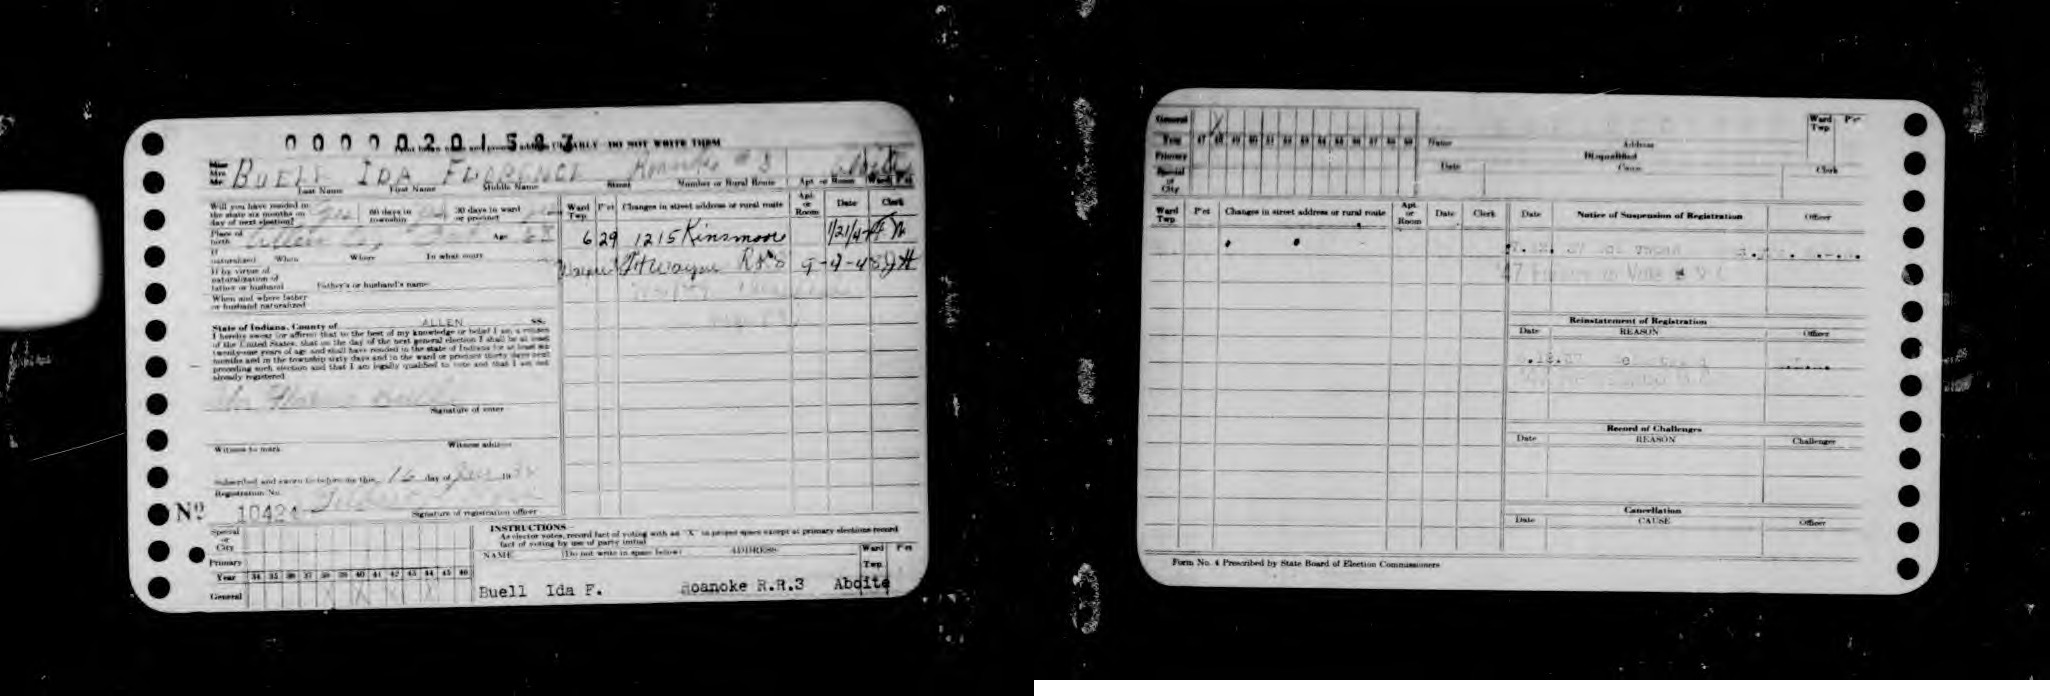 0 0 0 0 0 2 0 1 5 8 7
DO NOT WRITE THEM
Miss
Mrs
Mr
BUELL IDA FLORENCE Roanoke # 3 Aboite
Last Name First Name Middle Name Street Number or Rural Route Apt or Room Ward Pct
Will you have resided in
the state six months on
day of next election? Yes 60 days in
township 30 days in ward
or precinct
Place of
birth Allen Co. Age
If
naturalized When Where To what court
If by virtue of
naturalization of
father or husband Father's or husband's name
When and where father
or husband naturalized
State of Indiana, County of ALLEN SS.
I hereby swear (or affirm) that to the best of my knowledge or belief I am a citizen
of the United States, that on the day of the next general election I shall be at least
twenty-one years of age and shall have resided in the state of Indiana for at least six
months and in the township sixty days and in the ward or precinct thirty days next
preceding such election and that I am legally qualified to vote and that I am not
already registered
Signature of voter
Witness to mark Witness address
Subscribed and sworn to before me this 16 day of 19
Registration No.
No 10424
Signature of registration officer
Ward
Twp. Pct Changes in street address or rural route Apt
or
Room Date Clerk
6 29 1215 Kinsmoor 1/21/4
Wayne Ft Wayne RR 8 9-2-48 JH
Special
or
City
Primary
Year 34 35 36 37 38 39 40 41 42 43 44 45 46
General X X X
INSTRUCTIONS
As elector votes, record fact of voting with an "X" in proper space except at primary elections record
fact of voting by use of party initial
NAME (Do not write in space below) ADDRESS Ward
Twp. Pct
Buell Ida F. Roanoke R.R.3 Aboite
General X
Year 47 48 49 50 51 52 53 54 55 56 57 58 59
Primary
Special
or
City
Name Address
Ward
Twp Pct
Disqualified
Date Cause Clerk
Ward
Twp. Pct Changes in street address or rural route Apt.
or
Room Date Clerk
Date Notice of Suspension of Registration Officer
'47 Failure to Vote
Reinstatement of Registration
Date REASON Officer
Record of Challenges
Date REASON Challenger
Cancellation
Date CAUSE Officer
Form No. 4 Prescribed by State Board of Election Commissioners